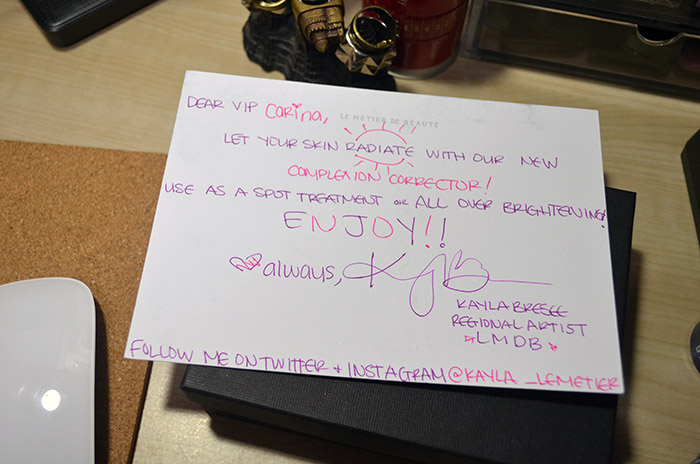 LE MÉTIER DE BEAUTÉ
DEAR VIP Carina,
LET YOUR SKIN RADIATE WITH OUR NEW
COMPLEXION CORRECTOR!
USE AS A SPOT TREATMENT OR ALL OVER BRIGHTENING!
ENJOY!!
always, KB
KAYLA BRESEE
REGIONAL ARTIST
LMDB
FOLLOW ME ON TWITTER + INSTAGRAM @KAYLA_LEMETIER